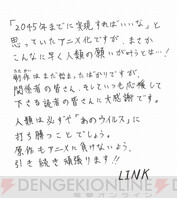 「2045年までに実現すればいいな」と
思っていたアニメ化ですが、まさか
こんなに早く人類の願いが叶うとは…!
制作はまだ始まったばかりですが、
関係者の皆さん、そしていつも応援して
下さる読者の皆さんに大感謝です。
人類は必ずや「あのウイルス」に
打ち勝つことでしょう。
原作もアニメに負けないよう、
引き続き頑張ります!!
LINK
©DENGEKIONLINE